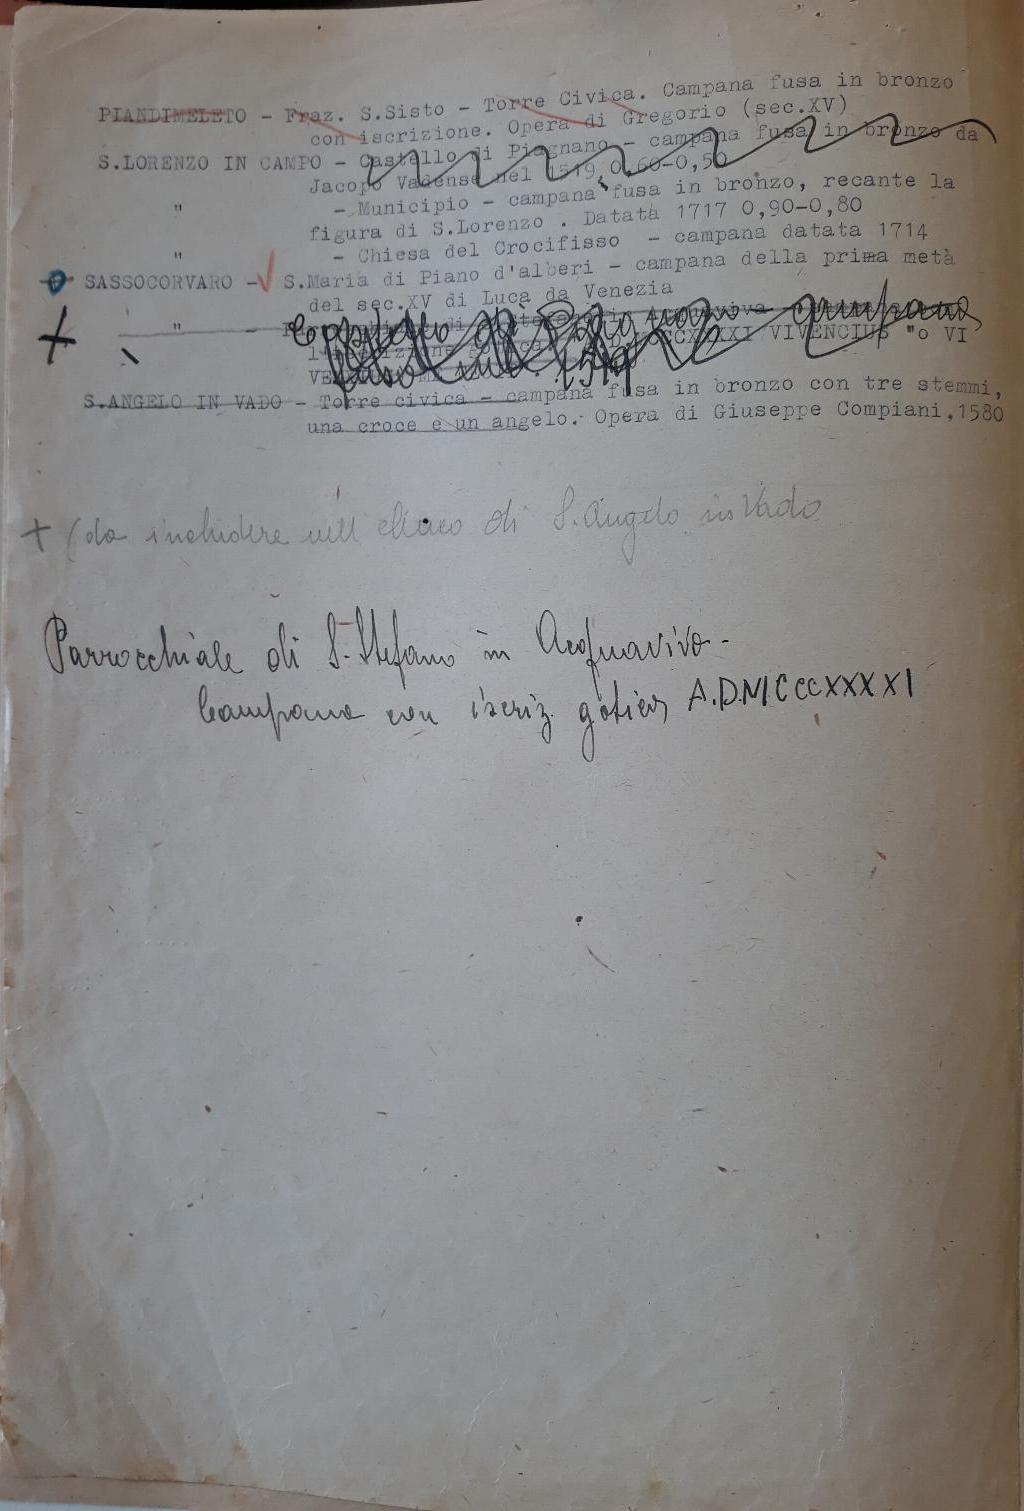 PIANDIMELETO - Fraz. S.Sisto - Torre Civica. Campana fusa in bronzo
con iscrizione. Opera di Gregorio (sec.XV)
S.LORENZO IN CAMPO - Castello di Piagnano - campana fusa in bronzo da
Jacopo Vadense nel 1519 0,60-0,50
" - Municipio - campana fusa in bronzo, recante la
figura di S.Lorenzo . Datata 1717 0,90-0,80
" - Chiesa del Crocifisso - campana datata 1714
SASSOCORVARO - √ S.Maria di Piano d'alberi - campana della prima metà
del sec.XV di Luca da Venezia
+ " - Castello di Piagnano - campana
VIVENCIUS "o VI
1519
S.ANGELO IN VADO - Torre civica - campana fusa in bronzo con tre stemmi,
una croce e un angelo. Opera di Giuseppe Compiani,1580
+ (da includere nell'elenco di S.Angelo in Vado
Parrocchiale di S.Stefano in Acquaviva -
Campana con iscriz. gotica A.D.MCCCXXXXI